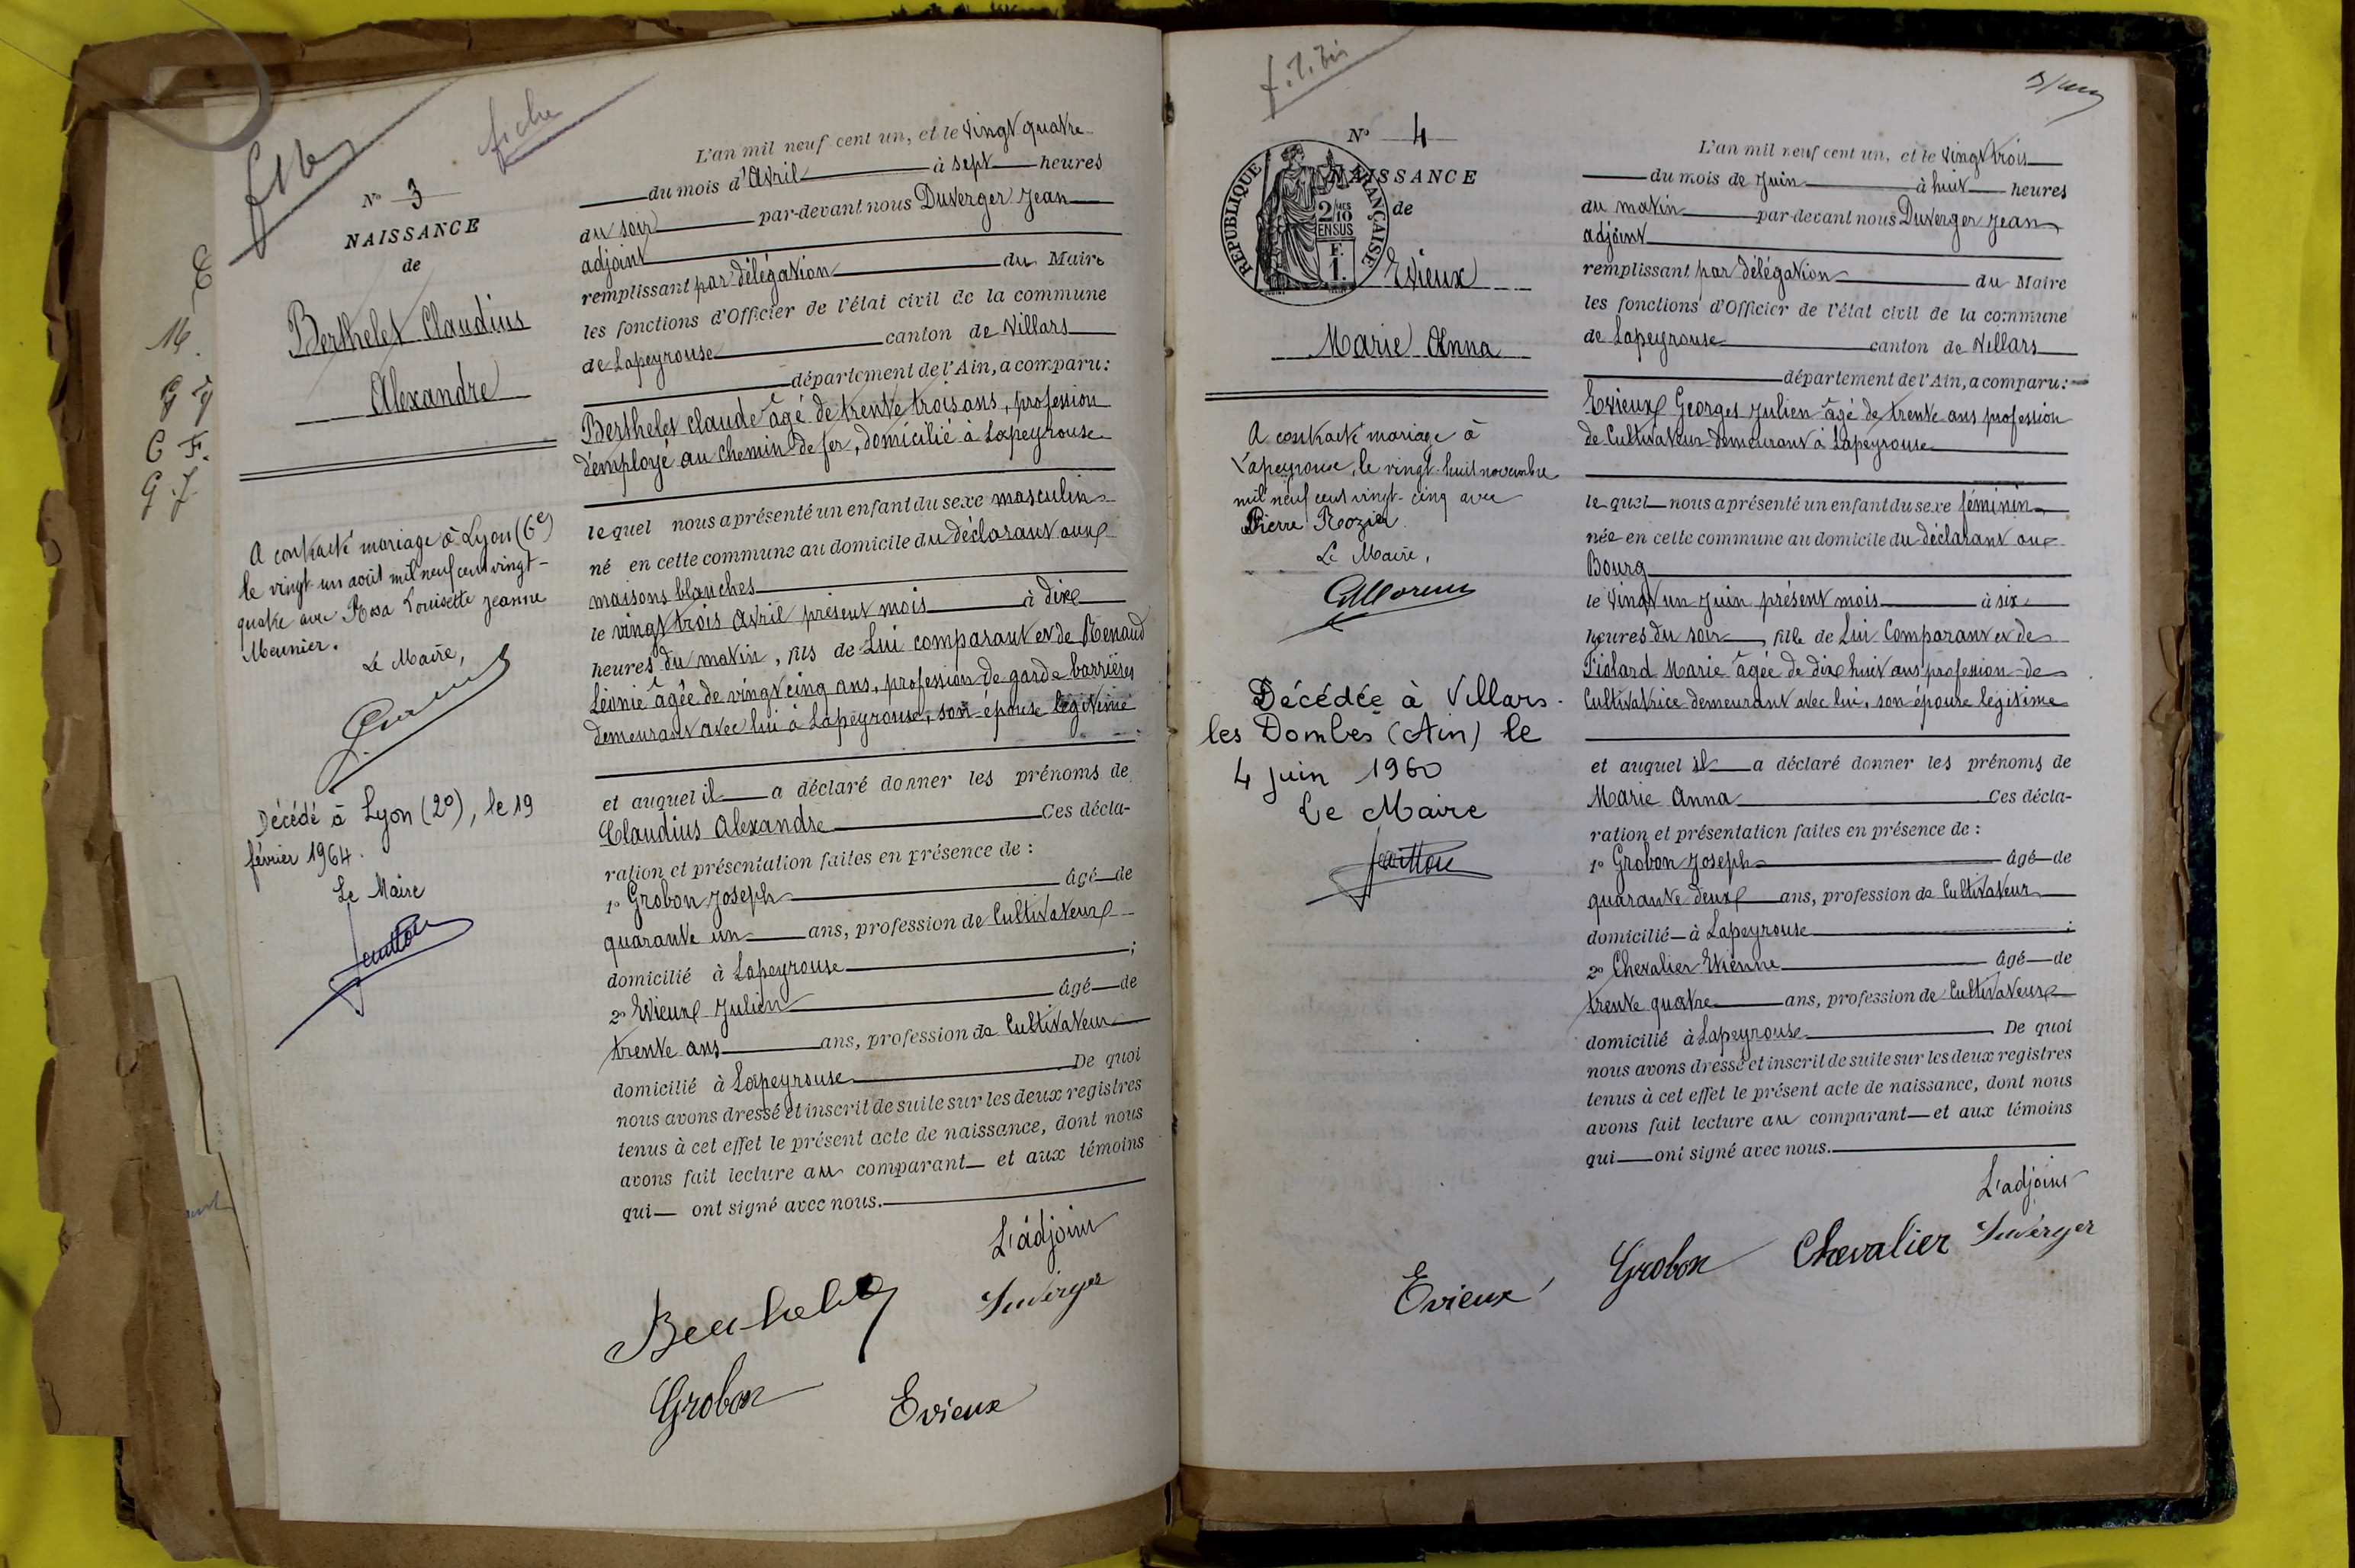 fiche
N° 3
NAISSANCE
de
Berthelet Claudius
Alexandre
A contracté mariage à Lyon (6e)
le vingt-un août mil neuf cent vingt-
quatre avec Rosa Louisette Jeanne
Meunier.
Le Maire,
Décédé à Lyon (2°), le 19
février 1964.
Le Maire
E
M.
G J
C F.
G J.
L'an mil neuf cent un, et le vingt quatre
du mois d'Avril à sept heures
du soir par-devant nous Duverger Jean
adjoint
remplissant par délégation du Maire
les fonctions d'Officier de l'état civil de la commune
de Lapeyrouse canton de Villars
département de l'Ain, a comparu:
Berthelet Claude âgé de trente trois ans, profession
d'employé au chemin de fer, domicilié à Lapeyrouse
lequel nous a présenté un enfant du sexe masculin
né en cette commune au domicile du déclarant aux
maisons blanches
le vingt trois Avril présent mois à dix
heures du matin, fils de Lui comparant et de Renaud
Léonie âgée de vingt cinq ans, profession de garde barrières
demeurant avec lui à Lapeyrouse, son épouse légitime
et auquel il a déclaré donner les prénoms de
Claudius Alexandre Ces décla-
ration et présentation faites en présence de :
1° Grobon Joseph âgé de
quarante un ans, profession de Cultivateur
domicilié à Lapeyrouse ;
2° Evieux Julien âgé de
trente ans ans, profession de Cultivateur
domicilié à Lapeyrouse De quoi
nous avons dressé et inscrit de suite sur les deux registres
tenus à cet effet le présent acte de naissance, dont nous
avons fait lecture au comparant et aux témoins
qui ont signé avec nous.
L'adjoint
Berthelet Duverger
Grobon Evieux
N° 4
NAISSANCE
de
RÉPUBLIQUE FRANÇAISE
2/10
EN SUS
F.
1.
Evieux
Marie Anna
A contracté mariage à
Lapeyrouse, le vingt-huit novembre
mil neuf cent vingt-cinq avec
Pierre Rozier.
Le Maire,
Décédée à Villars-
les Dombes (Ain) le
4 juin 1960
Le Maire
L'an mil neuf cent un, et le vingt trois
du mois de Juin à huit heures
du matin par-devant nous Duverger Jean
adjoint
remplissant par délégation du Maire
les fonctions d'Officier de l'état civil de la commune
de Lapeyrouse canton de Villars
département de l'Ain, a comparu:
Evieux Georges Julien âgé de trente ans profession
de Cultivateur demeurant à Lapeyrouse
lequel nous a présenté un enfant du sexe féminin
née en cette commune au domicile du déclarant au
Bourg
le vingt un Juin présent mois à six
heures du soir, fille de Lui Comparant et de
Piolard Marie âgée de dix huit ans profession de
Cultivatrice demeurant avec lui, son épouse légitime
et auquel il a déclaré donner les prénoms de
Marie Anna Ces décla-
ration et présentation faites en présence de :
1° Grobon Joseph âgé de
quarante deux ans, profession de Cultivateur
domicilié à Lapeyrouse ;
2° Chevalier Etienne âgé de
trente quatre ans, profession de Cultivateur
domicilié à Lapeyrouse De quoi
nous avons dressé et inscrit de suite sur les deux registres
tenus à cet effet le présent acte de naissance, dont nous
avons fait lecture au comparant et aux témoins
qui ont signé avec nous.
L'adjoint
Evieux Grobon Chevalier Duverger